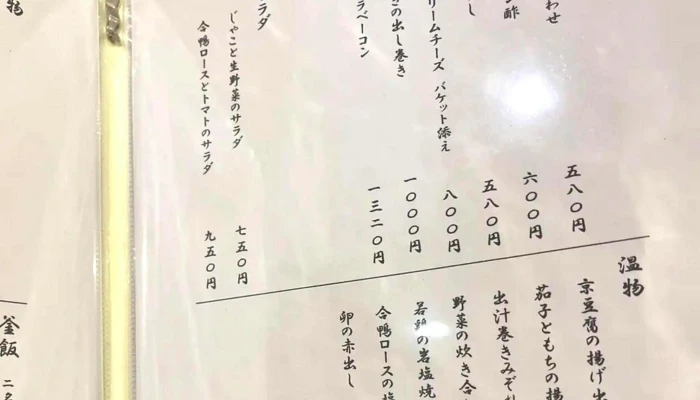 わせ 五八〇円
酢 六〇〇円
し 五八〇円
リームチーズ バケット添え 八〇〇円
の出し巻き 一〇〇〇円
ラベーコン 一三二〇円
ラダ
じゃこと生野菜のサラダ 七五〇円
合鴨ロースとトマトのサラダ 九五〇円
温物
京豆腐の揚げ出
茄子ともちの揚
出汁巻きみぞ
野菜の炊き合
若鶏の岩塩焼
合鴨ロースの塩
卵の赤出し
物
釜飯 二名